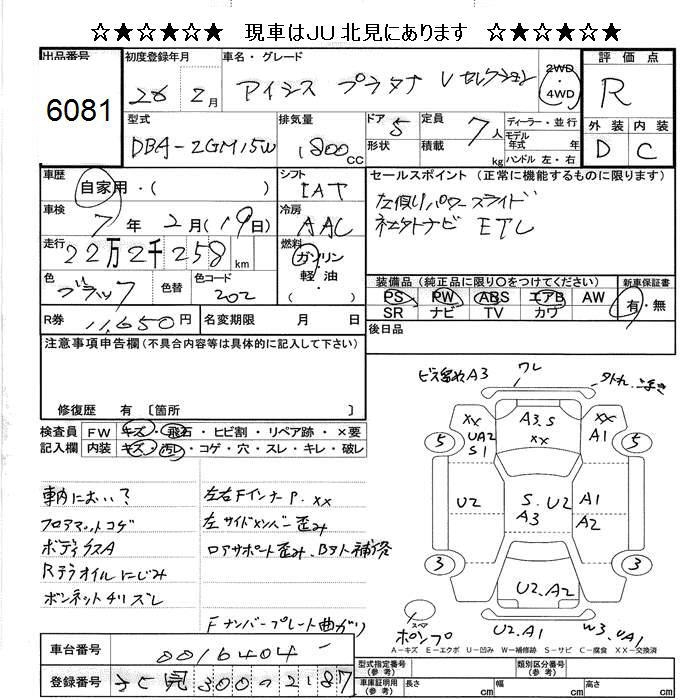 ☆★☆★☆★ 現車はJU北見にあります ☆★☆★☆★
出品番号
6081
初度登録年月
26 2月
車名・グレード
アイシス プラタナ Vセレクション
2WD
4WD
評価点
R
外装 内装
D C
型式
DBA-ZGM15W
排気量
1800CC
ドア 5
形状
定員 7人
積載 kg
ディーラー・並行
モデル年式 年式
ハンドル 左・右
車歴
自家用・( )
シフト
IAT
車検
7年2月(19日)
冷房
AAC
走行
22万2千258km
燃料
ガソリン
軽・油
・( )
色
ブラック
色替
色コード
202
セールスポイント(正常に機能するものに限ります)
左側りパワースライド
ナビ ETC
装備品(純正品に限り○をつけてください)
PS PW ABS エアB AW
SR ナビ TV カワ
新車保証書
有・無
R券 11,650円
名変期限 月 日
後日品
注意事項申告欄(不具合内容等は具体的に記入して下さい)
修復歴 有〔箇所 〕
検査員記入欄
FW キズ・飛石・ヒビ割・リペア跡・×要
内装 キズ・汚レ・コゲ・穴・スレ・キレ・破レ
車内におい?
フロアマットコゲ
ボディクスA
Rデフオイルにじみ
ボンネットチリズレ
左右FインナーP. xx
左サイドメンバー歪み
ロアサポート歪み、Bアト補修
Fナンバープレート曲がり
ビス留めA3
ワレ
xx
UA2
S1
A3.S
xx
xx
A1
5
5
U2
S.U2
A3
A1
A2
3
3
U2.A2
スペア
ポンプ
U2.A1
W3.UA1
A-キズ E-エクボ U-凹み W-補修跡 S-サビ C-腐食 XX-交換済
車台番号
0016404
登録番号
北見 300 2187
型式指定番号(参考)
類別区分番号(参考)
車庫証明用(参考)
長さ cm
幅 cm
高さ cm